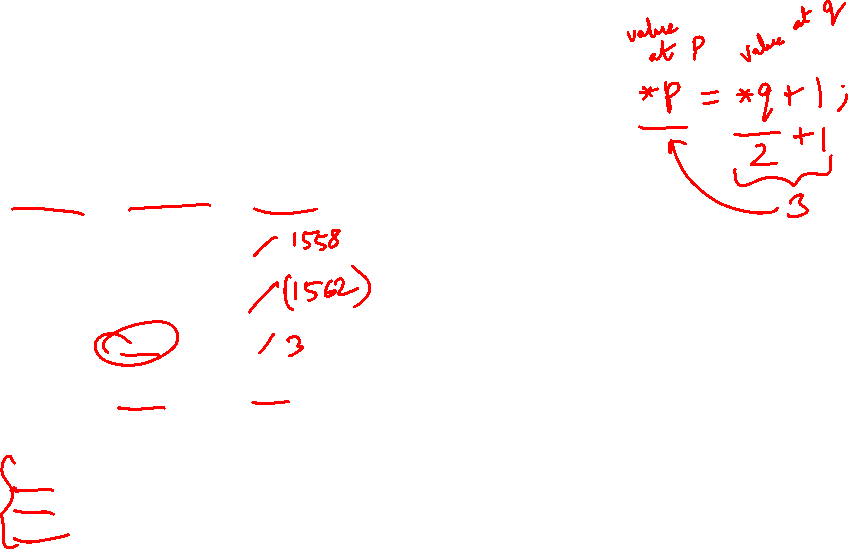 value at p value at q
*p = *q + 1 ;
2 + 1
3
/ 1558
/ (1562)
/ 3